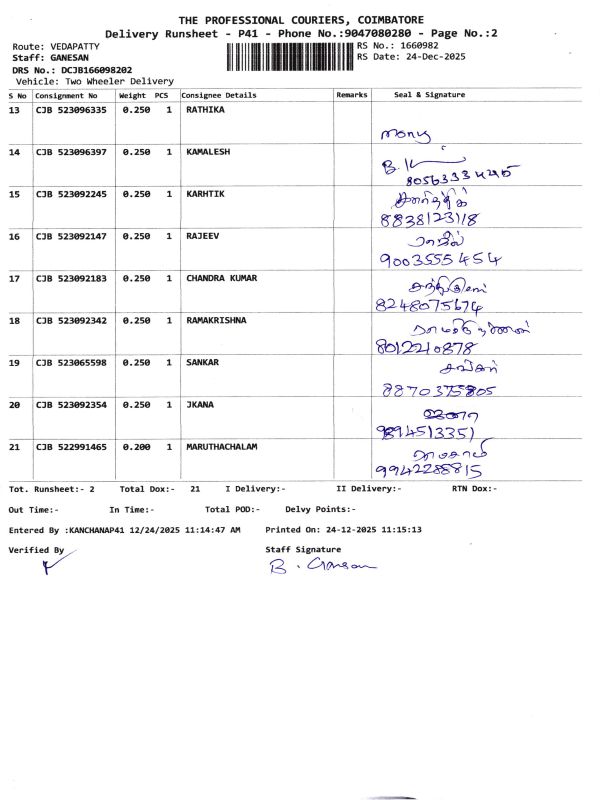 THE PROFESSIONAL COURIERS, COIMBATORE
Delivery Runsheet - P41 - Phone No.:9047080280 - Page No.:2
Route: VEDAPATTY RS No.: 1660982
Staff: GANESAN RS Date: 24-Dec-2025
DRS No.: DCJB166098202
Vehicle: Two Wheeler Delivery
S No Consignment No Weight PCS Consignee Details Remarks Seal & Signature
13 CJB 523096335 0.250 1 RATHIKA
mony
14 CJB 523096397 0.250 1 KAMALESH
15 CJB 523092245 0.250 1 KARHTIK
கார்த்திக்
8838123118
16 CJB 523092147 0.250 1 RAJEEV
ராஜீவ்
9003555454
17 CJB 523092183 0.250 1 CHANDRA KUMAR
8248075674
18 CJB 523092342 0.250 1 RAMAKRISHNA
8012210878
19 CJB 523065598 0.250 1 SANKAR
சங்கர்
8870375805
20 CJB 523092354 0.250 1 JKANA
9894513351
21 CJB 522991465 0.200 1 MARUTHACHALAM
9942288815
Tot. Runsheet:- 2 Total Dox:- 21 I Delivery:- II Delivery:- RTN Dox:-
Out Time:- In Time:- Total POD:- Delvy Points:-
Entered By :KANCHANAP41 12/24/2025 11:14:47 AM Printed On: 24-12-2025 11:15:13
Verified By Staff Signature
B. Ganesan